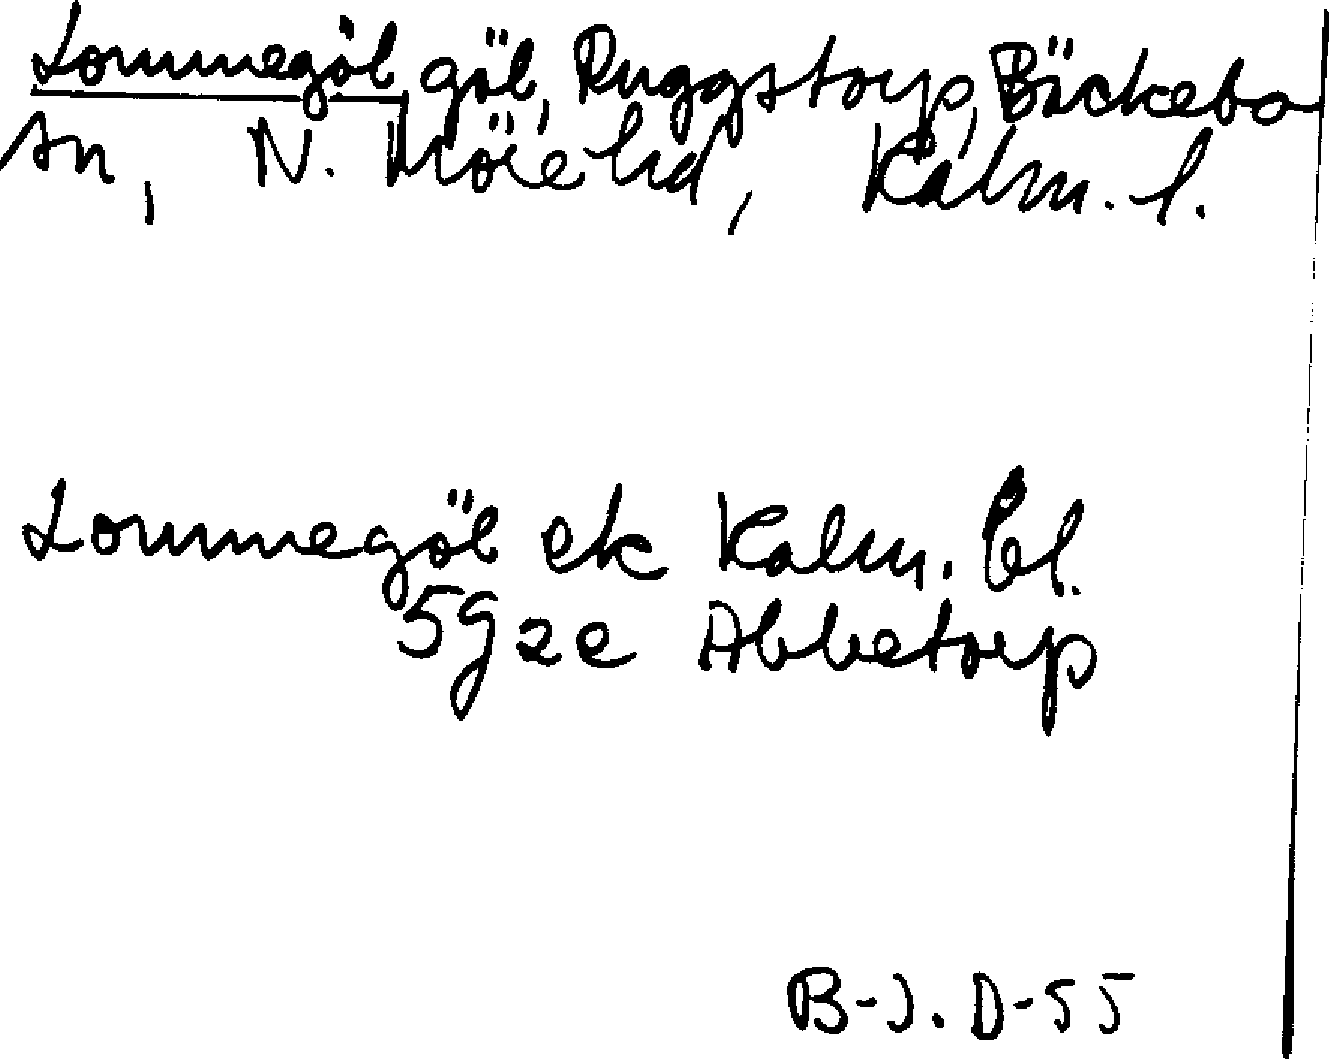 Lommegöl, göl, Ruggstorp, Bäckebo
sn, N. Möre hd, Kalm. l.
Lommegöl ek Kalm. bl.
5g2e Abbetorp
B-J. D-55